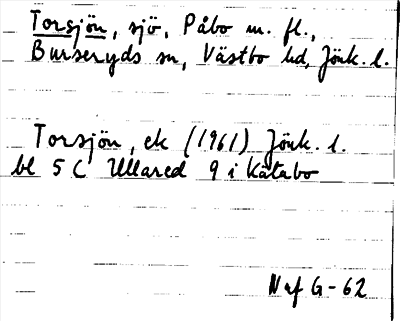 Torsjön, sjö, Påbo m. fl.,
Burseryds sn, Västbo hd, Jönk. l.
Torsjön, ek (1961) Jönk. l.
bl 5 C Ullared 9 i Kätabo
Naf G-62